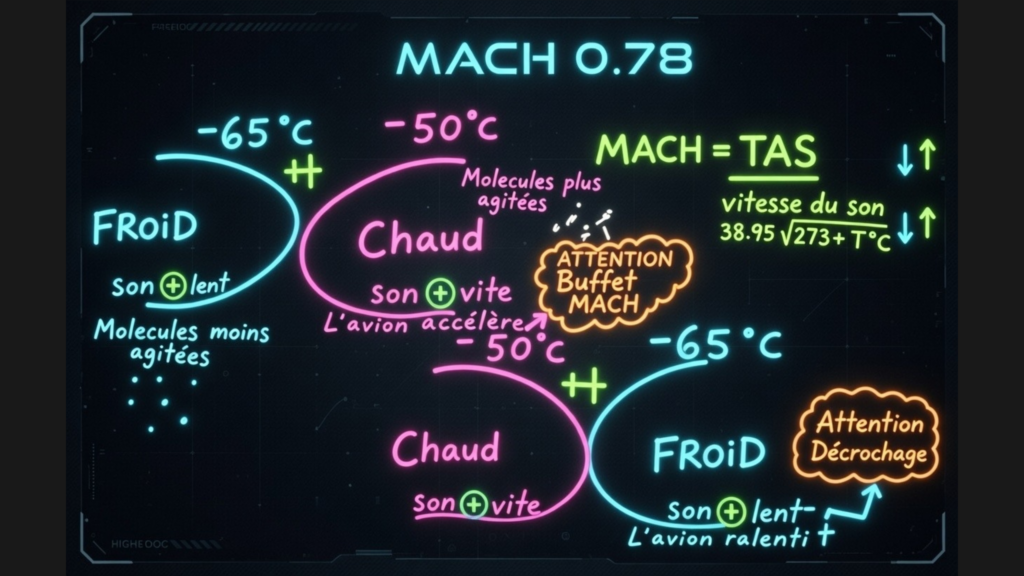 MACH 0.78
-65°C
-50°C
FROiD
son + lent
Molecules moins
agitées
Molecules plus
agitées
Chaud
son + vite
L'avion accélère
ATTENTION
Buffet
MACH
MACH = TAS
vitesse du son
38.95 √273+T°C
-50°C
-65°C
Chaud
son + vite
FROiD
son + lent
L'avion ralenti
Attention
Décrochage